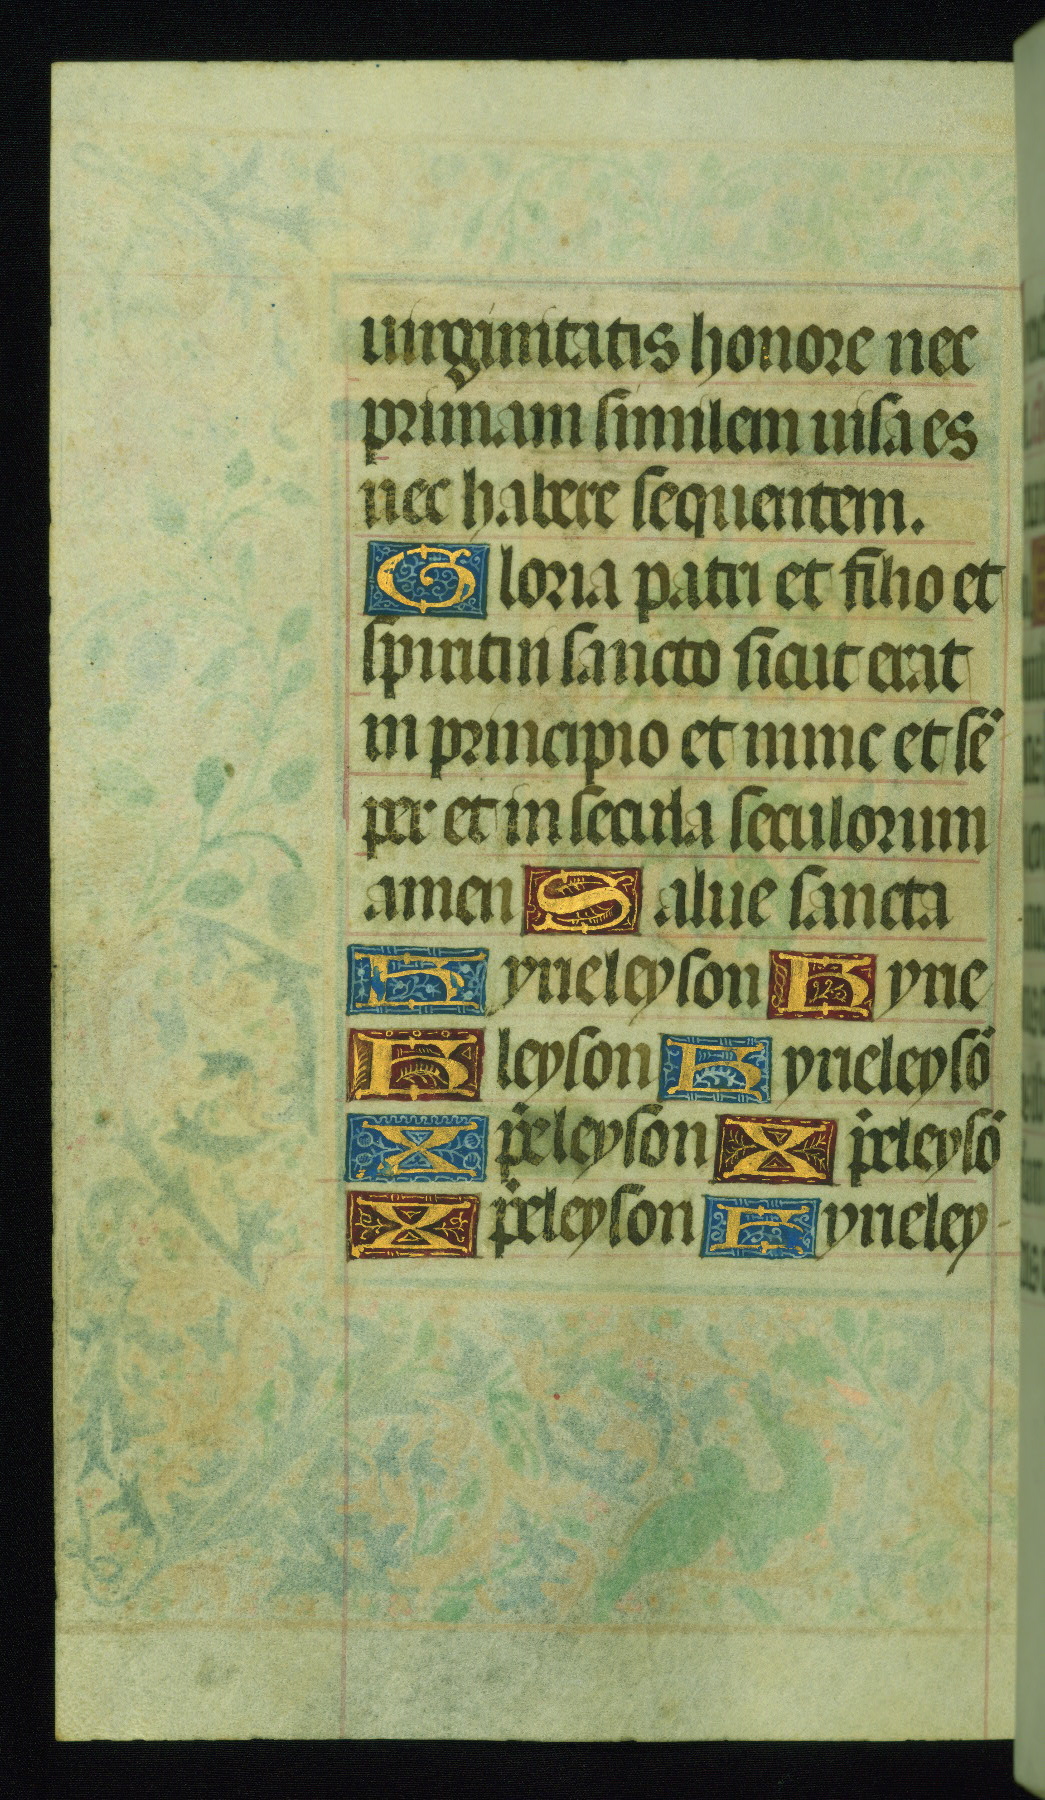 uirginitatis honore nec
primam similem uisa es
nec habere sequentem.
Gloria patri et filio et
spiritui sancto sicut erat
in principio et nunc et sē
per et in secula seculorum
amen Salue sancta
Kyrieleyson Kyrie
Kleyson Kyrieleysō
Xp̄eleyson Xp̄eleysō
Xp̄eleyson Kyrieley-